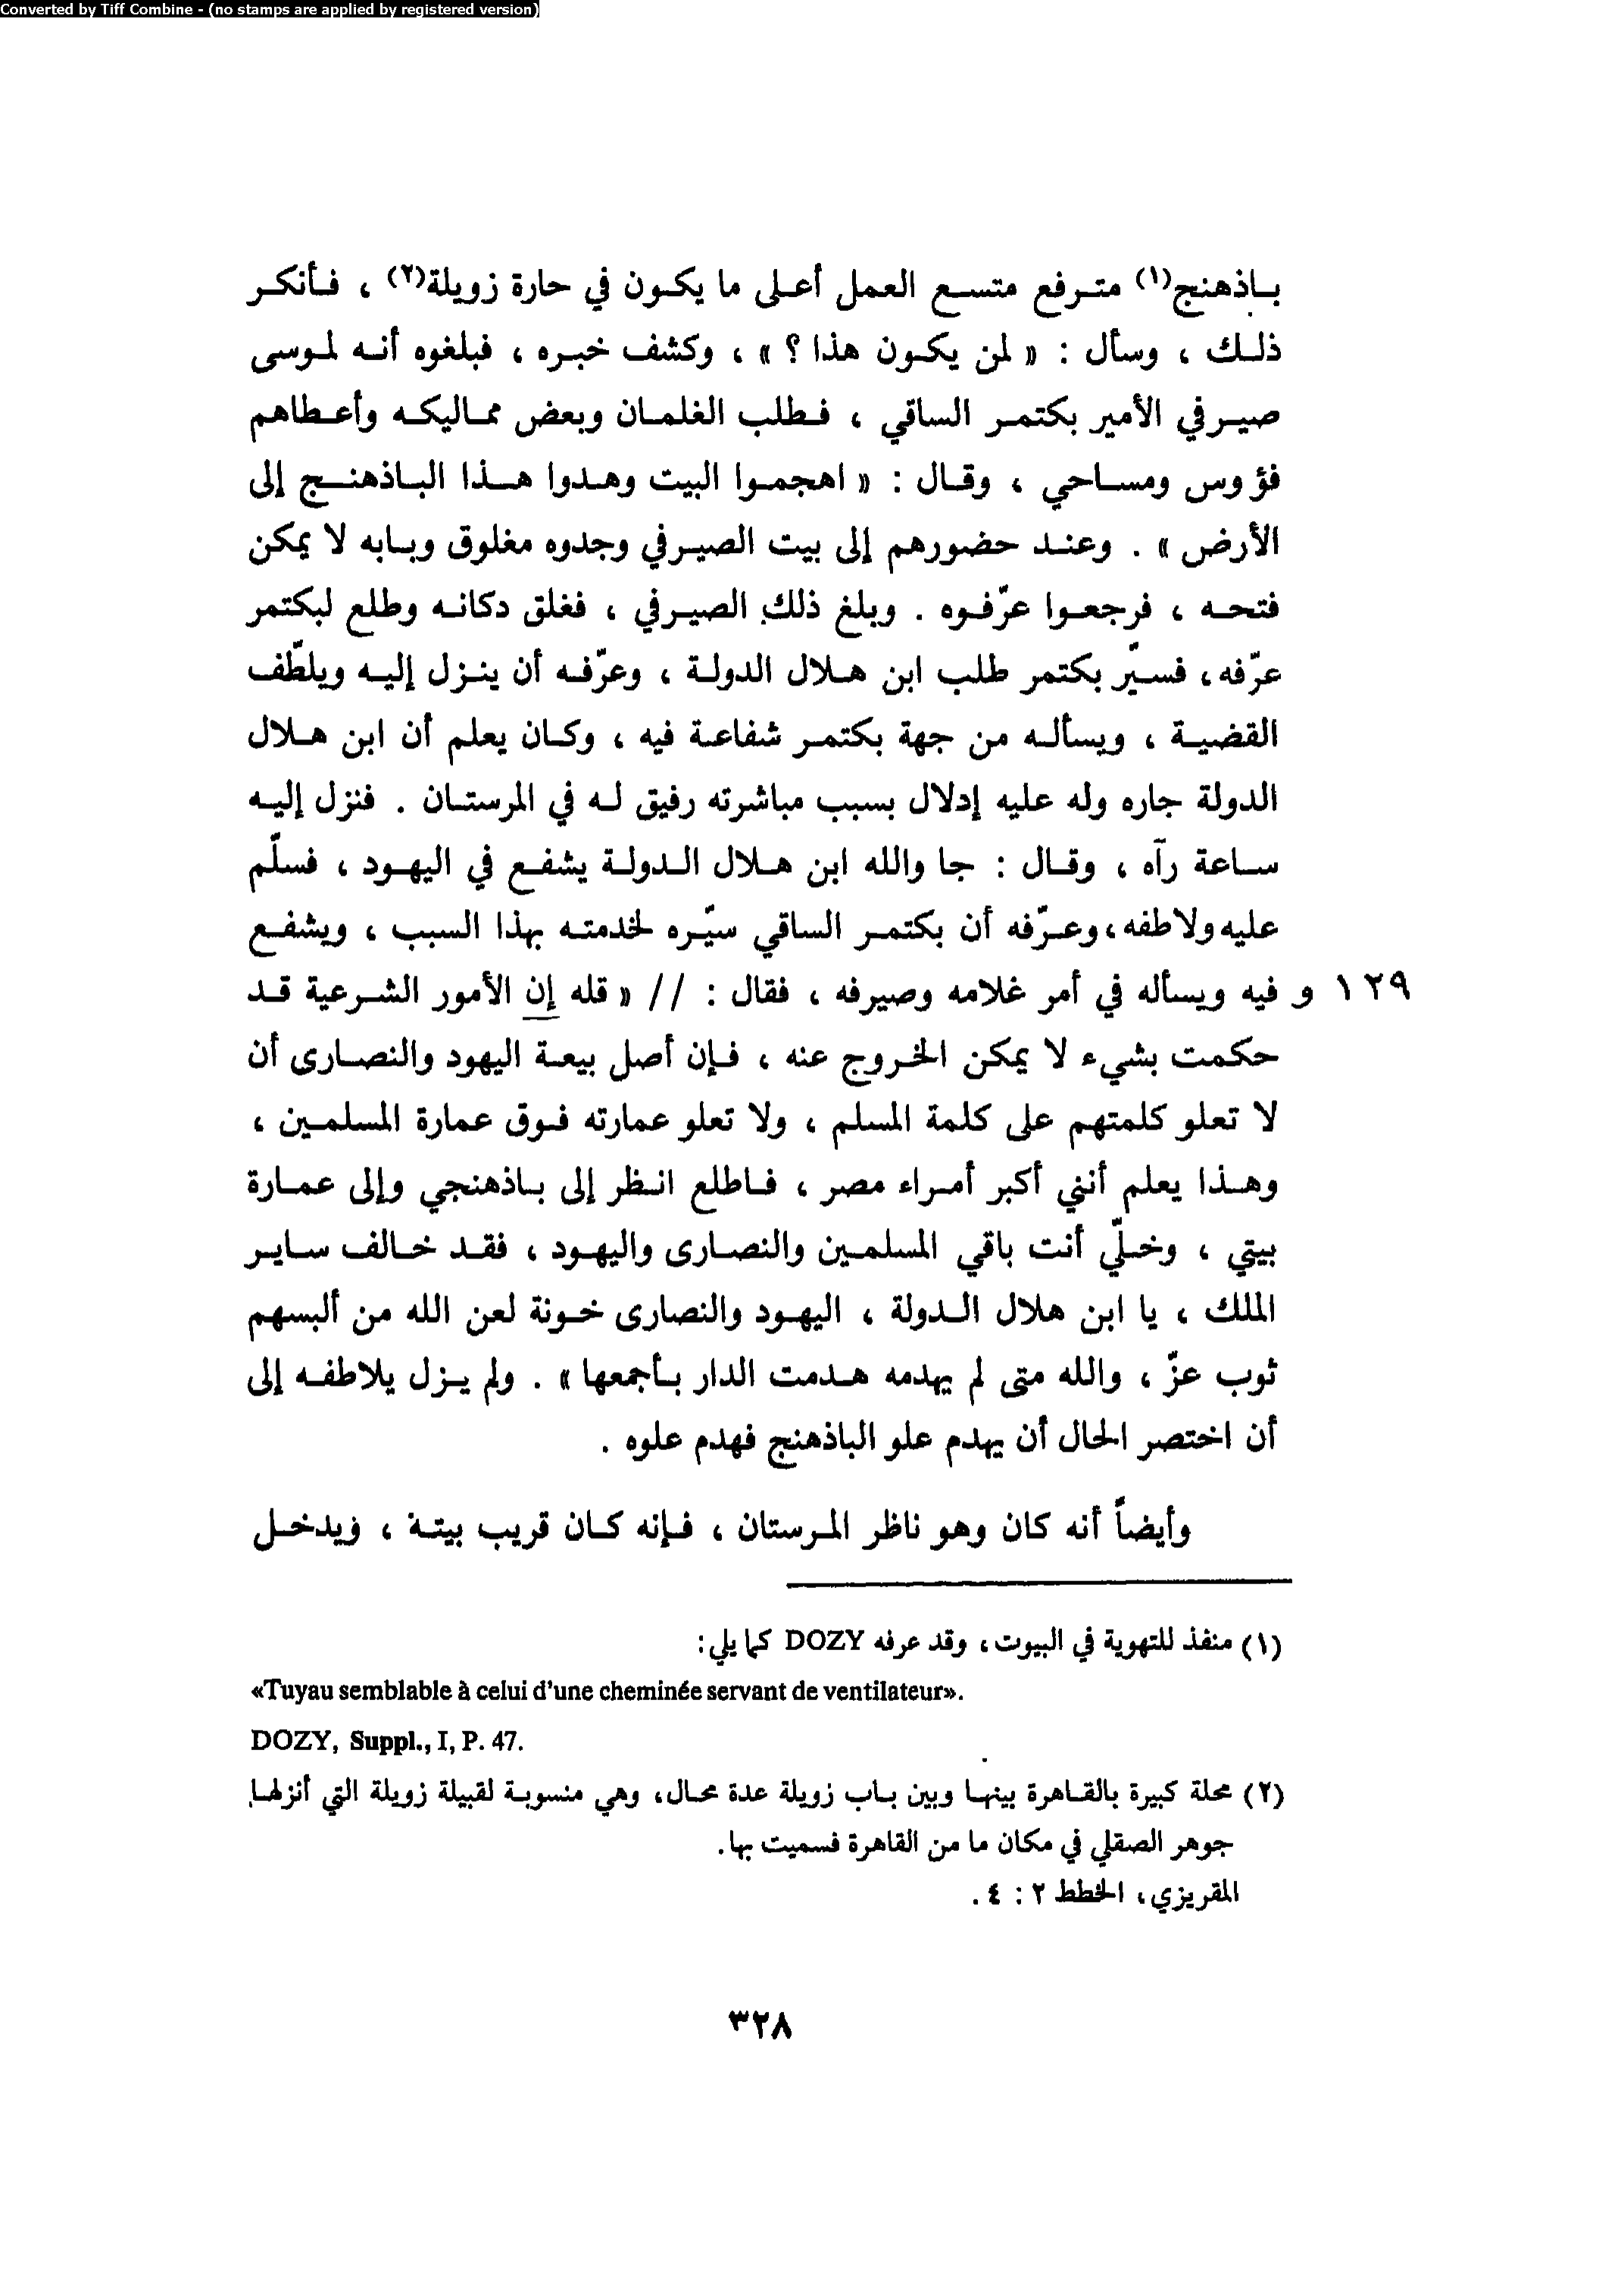 Converted by Tiff Combine - (no stamps are applied by registered version)
بـاذهنج(١) متـرفع متسـع العمل أعـلى ما يكـون في حارة زويلة(٢) ، فـأنكـر
ذلـك ، وسأل : « لمن يكـون هذا ؟ » ، وكشف خبـره ، فبلغوه أنـه لمـوسى
صيـرفي الأمير بكتمـر الساقي ، فـطلب الغلمـان وبعض ممـاليكـه وأعـطاهم
فؤوس ومسـاحي ، وقـال : « اهجمـوا البيت وهـدوا هـذا البـاذهنـج إلى
الأرض » . وعنـد حضورهم إلى بيت الصيـرفي وجدوه مغلوق وبـابه لا يمكن
فتحـه ، فرجعـوا عرّفـوه . وبلغ ذلك الصيـرفي ، فغلق دكانـه وطلع لبكتمر
عرّفه ، فسيّر بكتمر طلب ابن هـلال الدولـة ، وعرّفـه أن ينـزل إليـه ويلطّف
القضيـة ، ويسألـه من جهة بكتمـر شفاعـة فيه ، وكـان يعلم أن ابن هـلال
الدولة جاره وله عليه إدلال بسبب مباشرته رفيق لـه في المرستـان . فنزل إليـه
سـاعة رآه ، وقـال : جا والله ابن هـلال الـدولـة يشفـع في اليهـود ، فسلّم
عليه ولاطفه ، وعـرّفه أن بكتمـر الساقي سيّره لخدمتـه بهذا السبب ، ويشفـع
١٢٩ و فيه ويسأله في أمر غلامه وصيرفه ، فقال : // « قله إن الأمور الشـرعية قـد
حكمت بشيء لا يمكن الخـروج عنه ، فـإن أصل بيعـة اليهود والنصـارى أن
لا تعلو كلمتهم على كلمة المسلم ، ولا تعلو عمارته فـوق عمارة المسلمـين ،
وهـذا يعلم أنني أكبر أمـراء مصر ، فـاطلع انـظر إلى بـاذهنجي وإلى عمـارة
بيتي ، وخـلّي أنت باقي المسلمـين والنصـارى واليهـود ، فقـد خـالف سـايـر
الملك ، يا ابن هلال الـدولة ، اليهـود والنصارى خـونة لعن الله من ألبسهم
ثوب عزّ ، والله متى لم يهدمه هـدمت الدار بـأجمعها » . ولم يـزل يلاطفـه إلى
أن اختصر الحال أن يهدم علو الباذهنج فهدم علوه .
وأيضاً أنه كان وهو ناظر المـرستان ، فـإنه كـان قريب بيتـه ، فيدخـل
(١) منفذ للتهوية في البيوت ، وقد عرفه DOZY كما يلي :
«Tuyau semblable à celui d'une cheminée servant de ventilateur».
DOZY, Suppl., I, P. 47.
(٢) محلة كبيرة بالقـاهرة بينهـا وبين بـاب زويلة عدة محـال ، وهي منسوبـة لقبيلة زويلة التي أنزلهـا
جوهر الصقلي في مكان ما من القاهرة فسميت بها .
المقريزي ، الخطط ٢ : ٤ .
٣٢٨